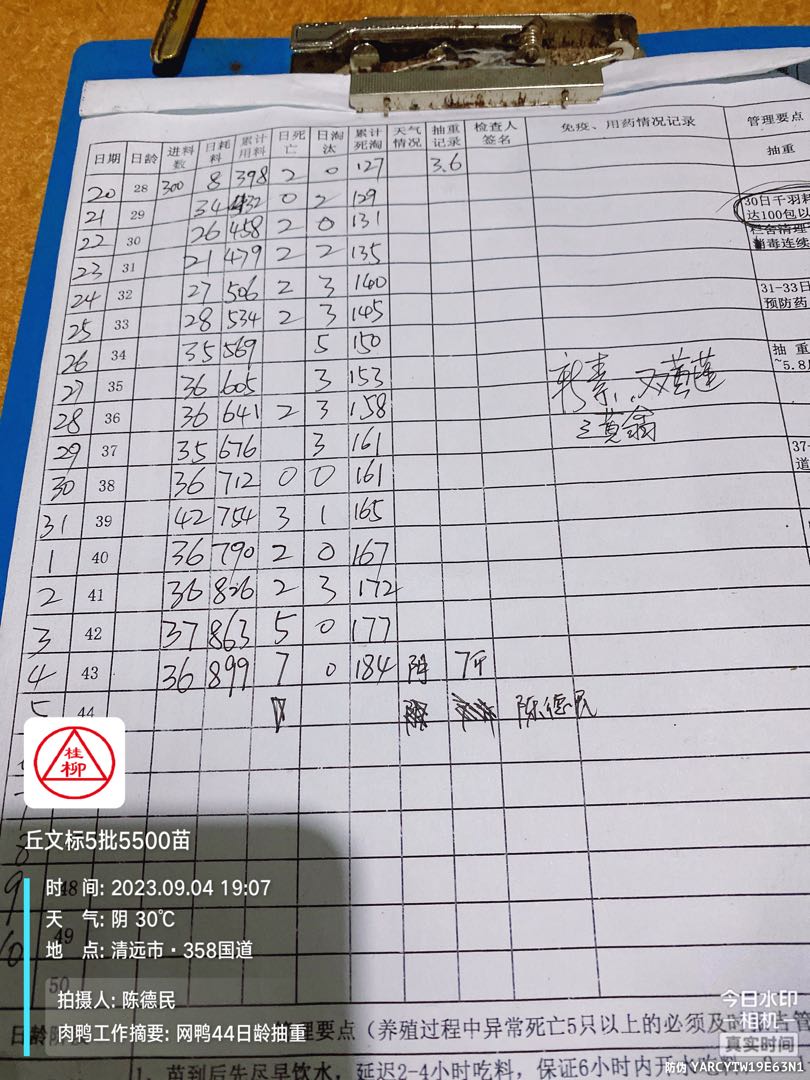 日期 日龄 进料数 日耗料 累计用料 日死亡 日淘汰 累计死淘 天气情况 抽重记录 检查人签名 免疫、用药情况记录 管理要点
20 28 300 8 398 2 0 127 3.6 抽重
21 29 34 432 0 2 129 30日千羽料
达100包以
22 30 26 458 2 0 131 栏舍清理
消毒连续
23 31 21 479 2 2 135
24 32 27 506 2 3 140 31-33日
预防药
25 33 28 534 2 3 145
26 34 35 569 5 150 抽重
~5.8
27 35 36 605 3 153 新素、双黄莲
28 36 36 641 2 3 158
29 37 35 676 3 161 37-
道
30 38 36 712 0 0 161
31 39 42 754 3 1 165
1 40 36 790 2 0 167
2 41 36 826 2 3 172
3 42 37 863 5 0 177
4 43 36 899 7 0 184 阴 7斤
5 44 陈德民
桂柳
丘文标5批5500苗
8
9 48
10 49
50
时 间: 2023.09.04 19:07
天 气: 阴 30℃
地 点: 清远市·358国道
拍摄人: 陈德民
肉鸭工作摘要: 网鸭44日龄抽重
今日水印
相机
真实时间
防伪 YARCYTW19E63N1
日龄 管理要点（养殖过程中异常死亡5只以上的必须及时
1、苗到后先尽早饮水，延迟2-4小时吃料，保证6小时内开水